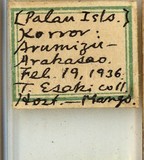 [Palau Isls.]
Korror:
Arumizu-
Arakasao.
Feb. 19, 1936
T. Esaki coll
Host.— Mango.